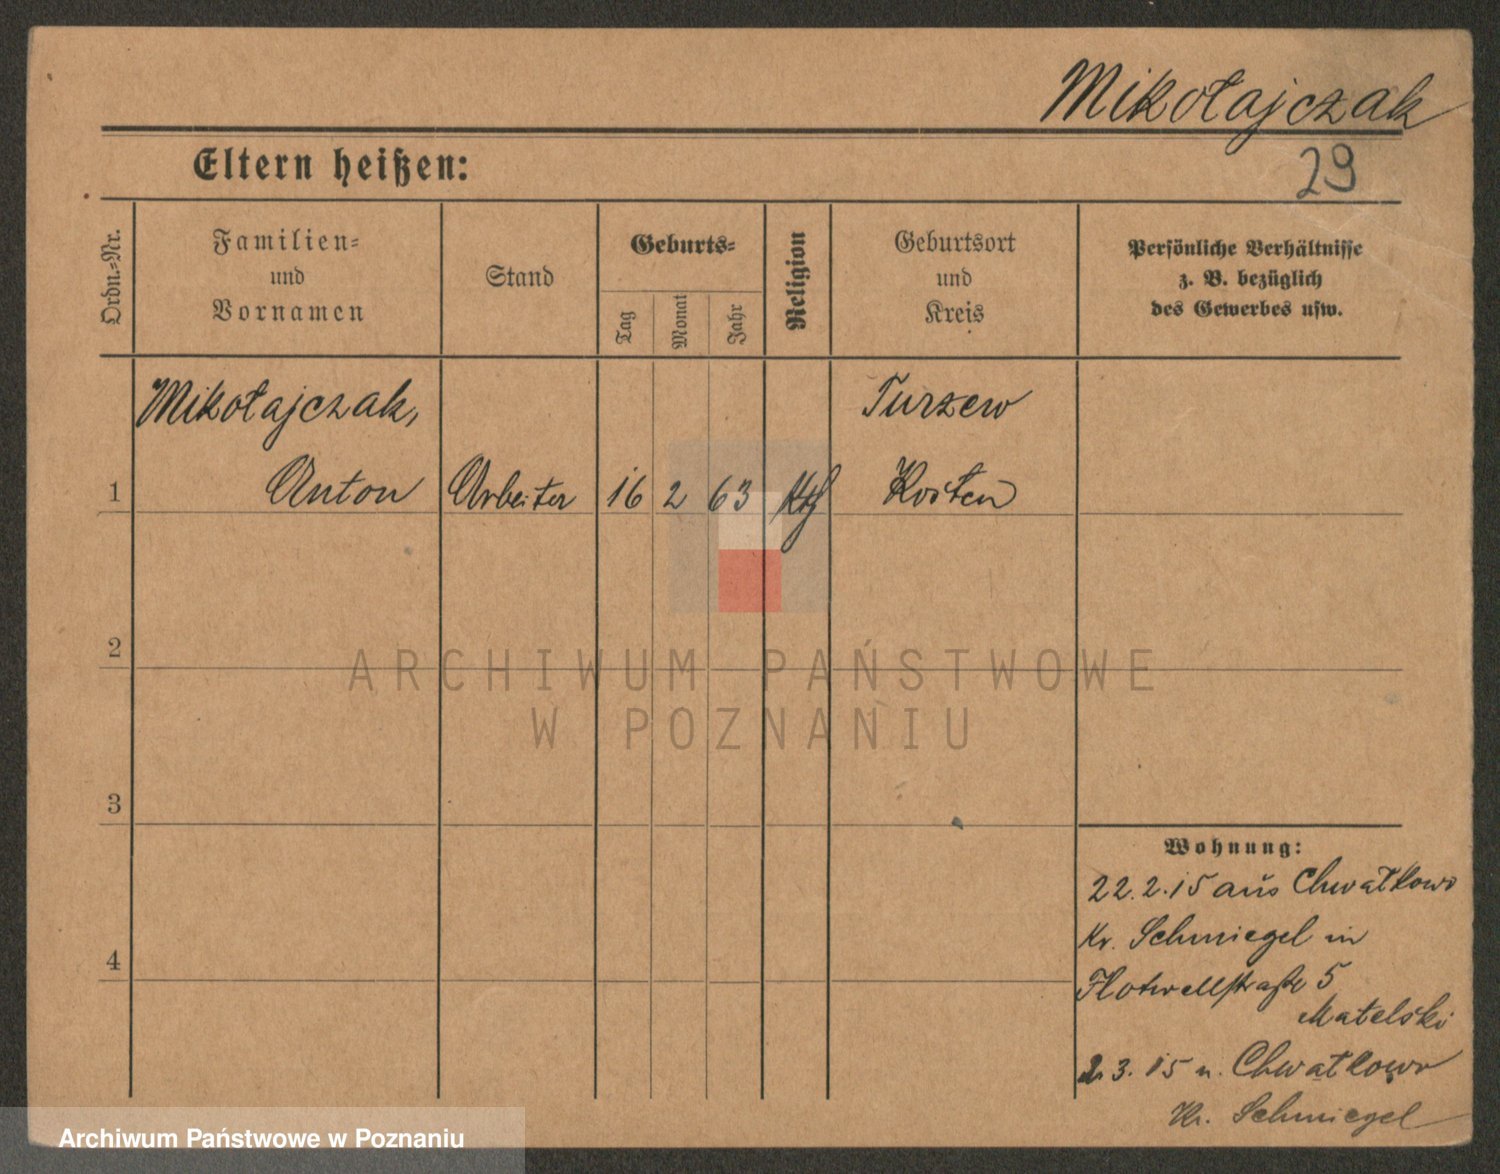 Mikołajczak
29
Eltern heißen:
Ordn.-Nr.
Familien-
und
Vornamen
Stand
Geburts-
Tag
Monat
Jahr
Religion
Geburtsort
und
Kreis
Persönliche Verhältnisse
z. B. bezüglich
des Gewerbes usw.
Mikołajczak,
Turzew
1 Anton Arbeiter 16 2 63 kth Kosten
2
ARCHIWUM PAŃSTWOWE
W POZNANIU
3
Wohnung:
22.2.15 aus Chwałkowo
Kr. Schmiegel in
4
Flotwellstraße 5
Matelski
2.3.15 n. Chwałkowo
Kr. Schmiegel
Archiwum Państwowe w Poznaniu